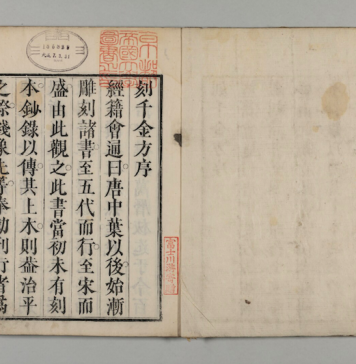 刻千金方序
經籍會通曰唐中葉以後始漸
雕刻諸書至五代而行至宋而
盛由此觀之此書當初未有刻
本鈔錄以傳其上木則葢治平
之際錢象先等奉勅刊行者爲
富士川游寄贈